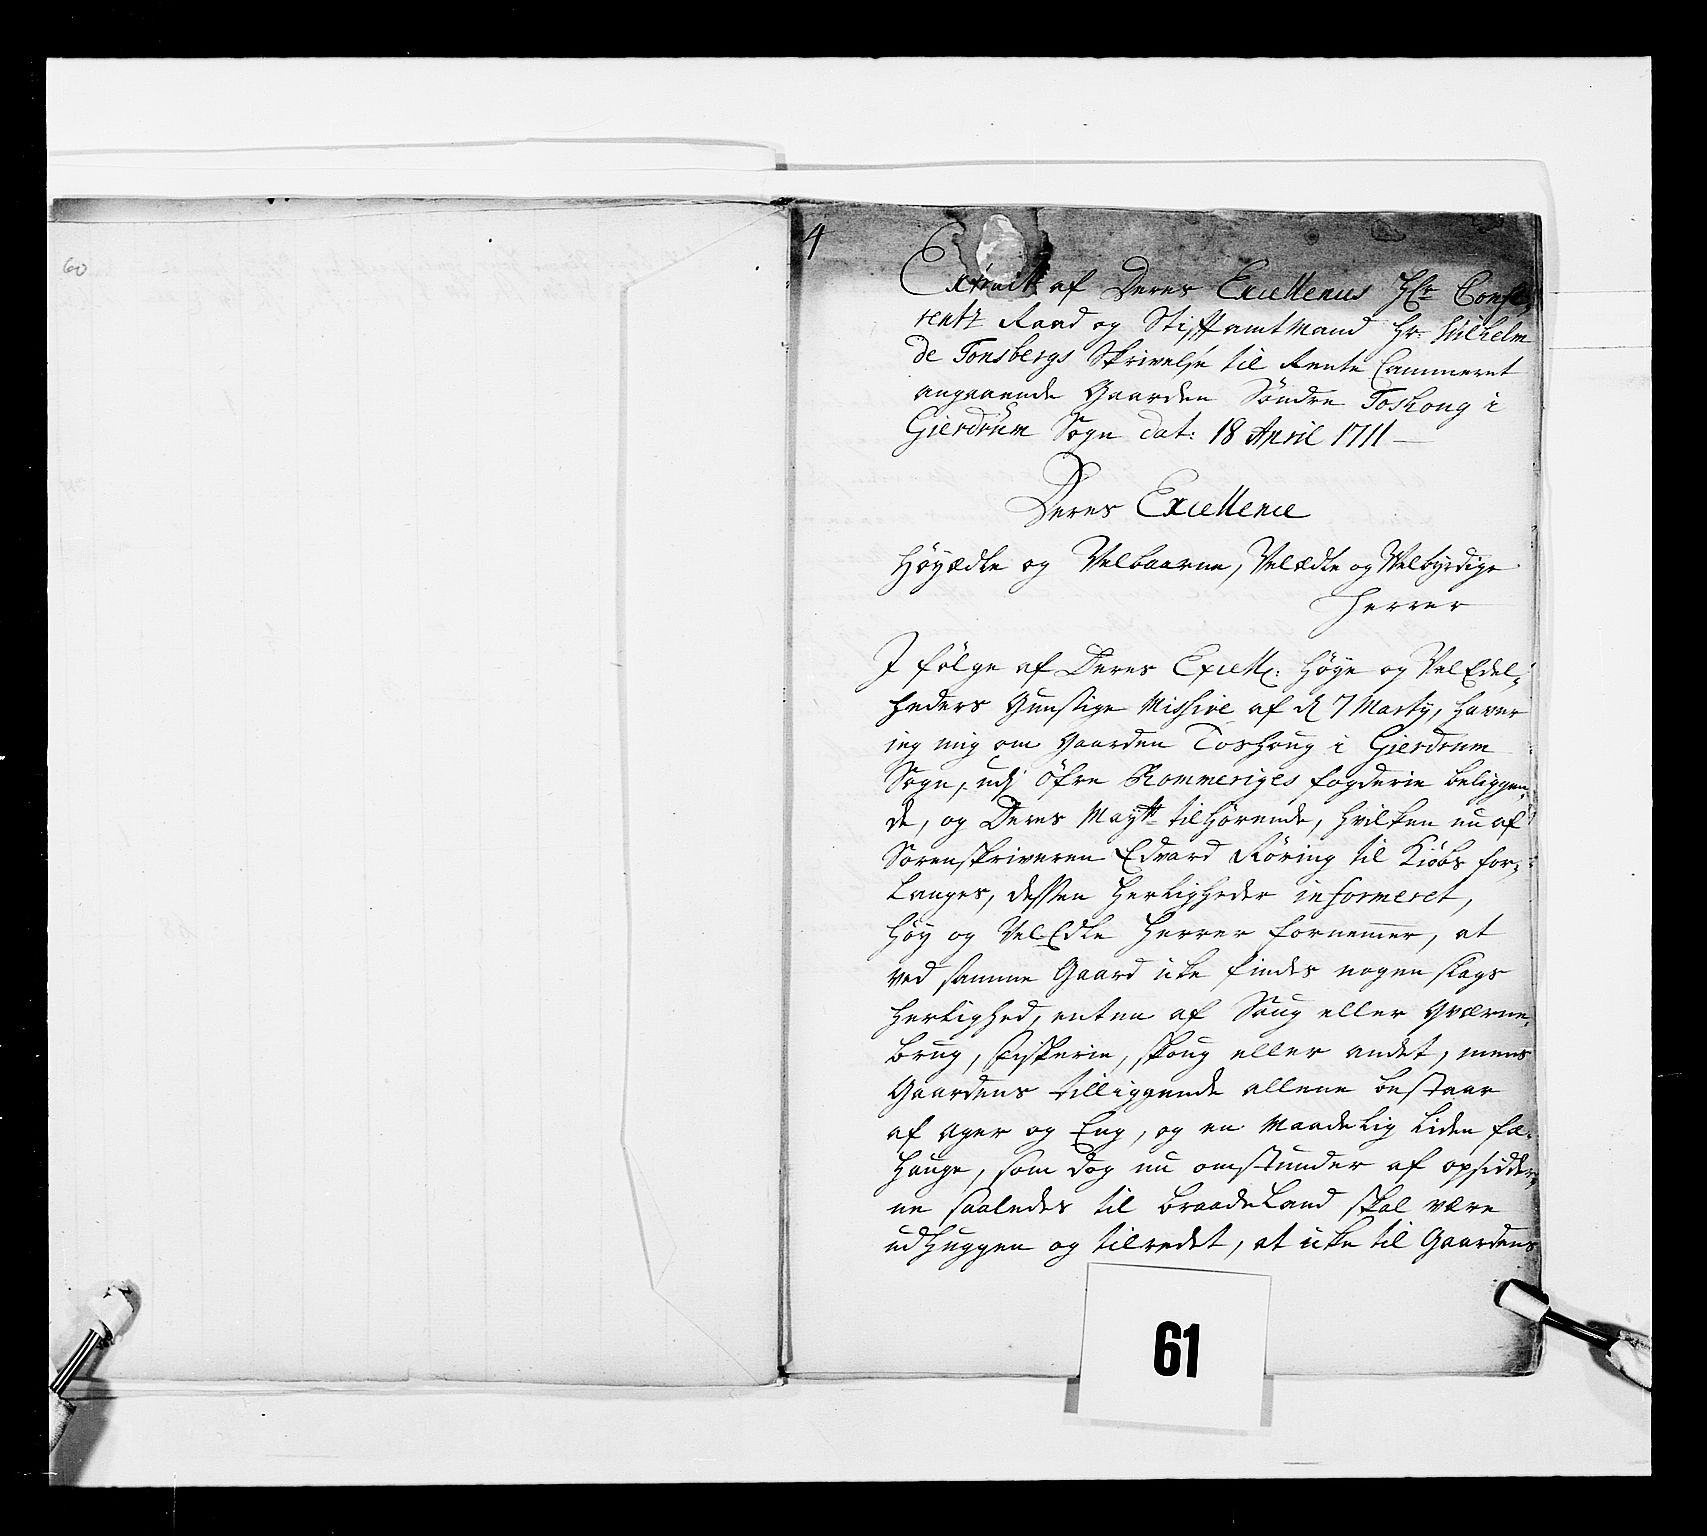 60
4
Extract af Deres Excellences Hr Confe,
rentz Raad og StifftamtMand Hr. Wilhelm
de Tonsbergs Skrivelse til Rente Cammeret
angaaende Gaarden Søndre Toshoug i
Gierdrum Sogn dat: 18 April 1711 —
Deres Excellence
Høyædle og Velbaarne, Velædle og Velbyrdige
Herrer
I følge af Deres Excell: Høye og VelEdel,
heders Gunstige Missive af d 7 Marty, haver
jeg mig om Gaarden Toshoug i Gierdrum
Sogn, udj Øfre Rommeriges fogderie beliggen,
de, og Deres Maytt tilhørende, hvilken nu af
Sorenskriveren Edvard Røring til Kiøbs for,
langes, dessen Herligheder informeret,
Høy og VelEdle Herrer fornemmer, at
ved samme Gaard icke findes nogen slags
Herlighed, enten af Saug eller Qværne,
brug, fiskerie, skoug eller andet, mens
Gaardens tilliggende allene bestaar
af Ager og Eng, og en Maadelig liden fæ,
hauge, som dog nu omstunder af opsidder,
ne saaledes til braadeland skal være
udhuggen og tilredet, at icke til Gaardens
61